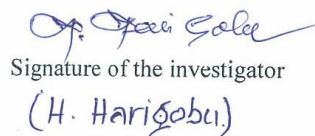 Signature of the investigator
(H. Harigobu.)